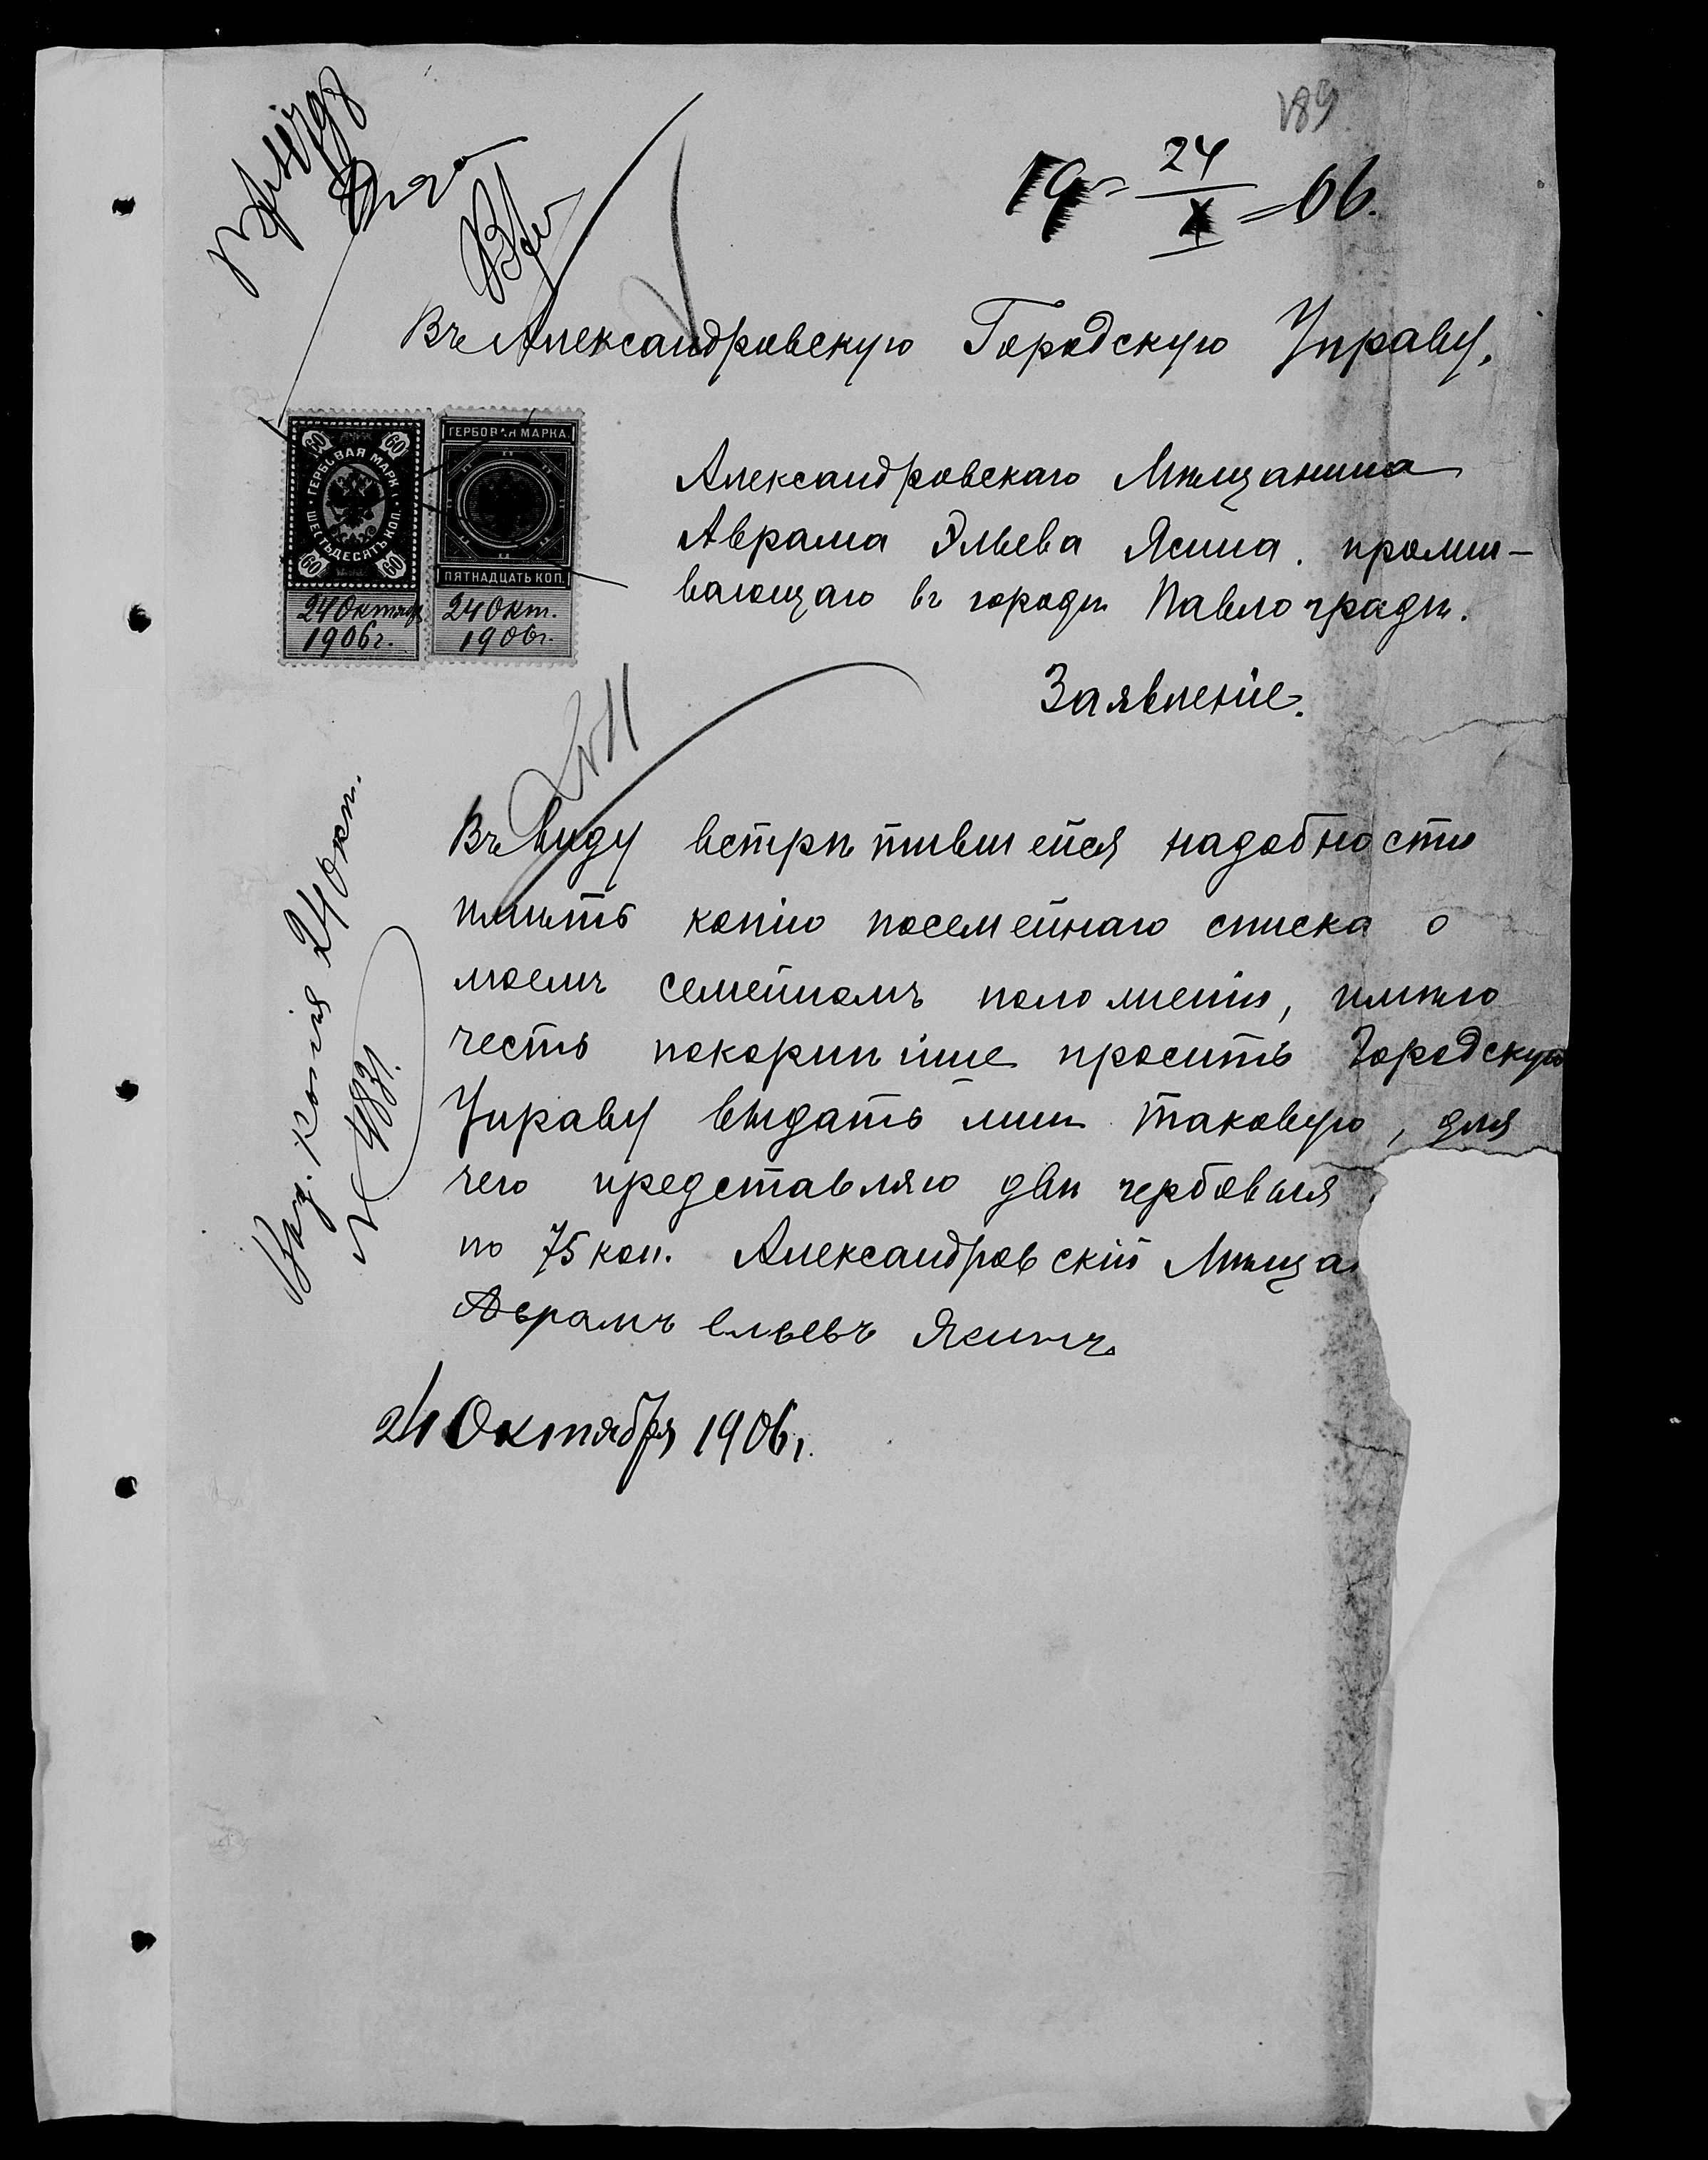 189
19 24/X 06.
Въ Александровскую Городскую Управу.
ГЕРБОВАЯ МАРКА
60 60
ШЕСТЬДЕСЯТЬ КОП.
60 60
24 Октября
1906г.
ГЕРБОВАЯ МАРКА
ПЯТНАДЦАТЬ КОП.
24 Окт.
1906г.
Александровскаго Мѣщанина
Аврама Эльева Ясина. прожи-
вающаго въ городѣ Павлоградѣ.
Заявленіе.
Въ виду встрѣтившейся надобности
имѣть копію посемейнаго списка о
моемъ семейномъ положеніи, имѣю
честь покорнѣйше просить Городскую
Управу выдать мнѣ таковую, для
чего представляю двѣ гербовыя
по 75 коп. Александровскій Мѣща
Аврамъ Ельевъ Ясинъ.
24 Октября 1906г.
Выд. копія 24 Окт.
№ 4831.